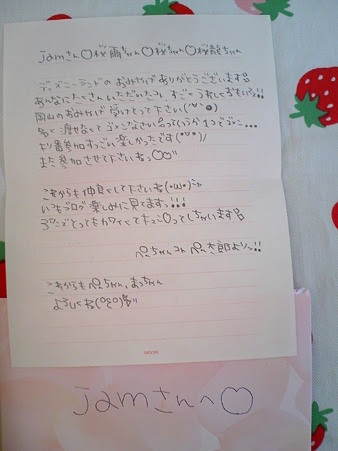 jamさん♡桜雨ちゃん♡桜ちゃん♡桜龍ちゃん
ディズニーランドのおみやげありがとうございます
あんなにたくさんいただいたコト すごくうれしくおもいっ!!
岡山のおみやげ 受けとって下さい
渡せなくてゴメンなさい
参加すっごい楽しかったです(
また参加させて下さいねっ♡♡
これからも仲良くして下さいね(・ω・)
いつもブログ楽しみに見てます。!!!
とってもカワイくてキュン♡ってしちゃいます
ちゃんコト 太郎よりッ!!
これからも ちゃん、まっちゃん
よろしくね
jamさんへ♡